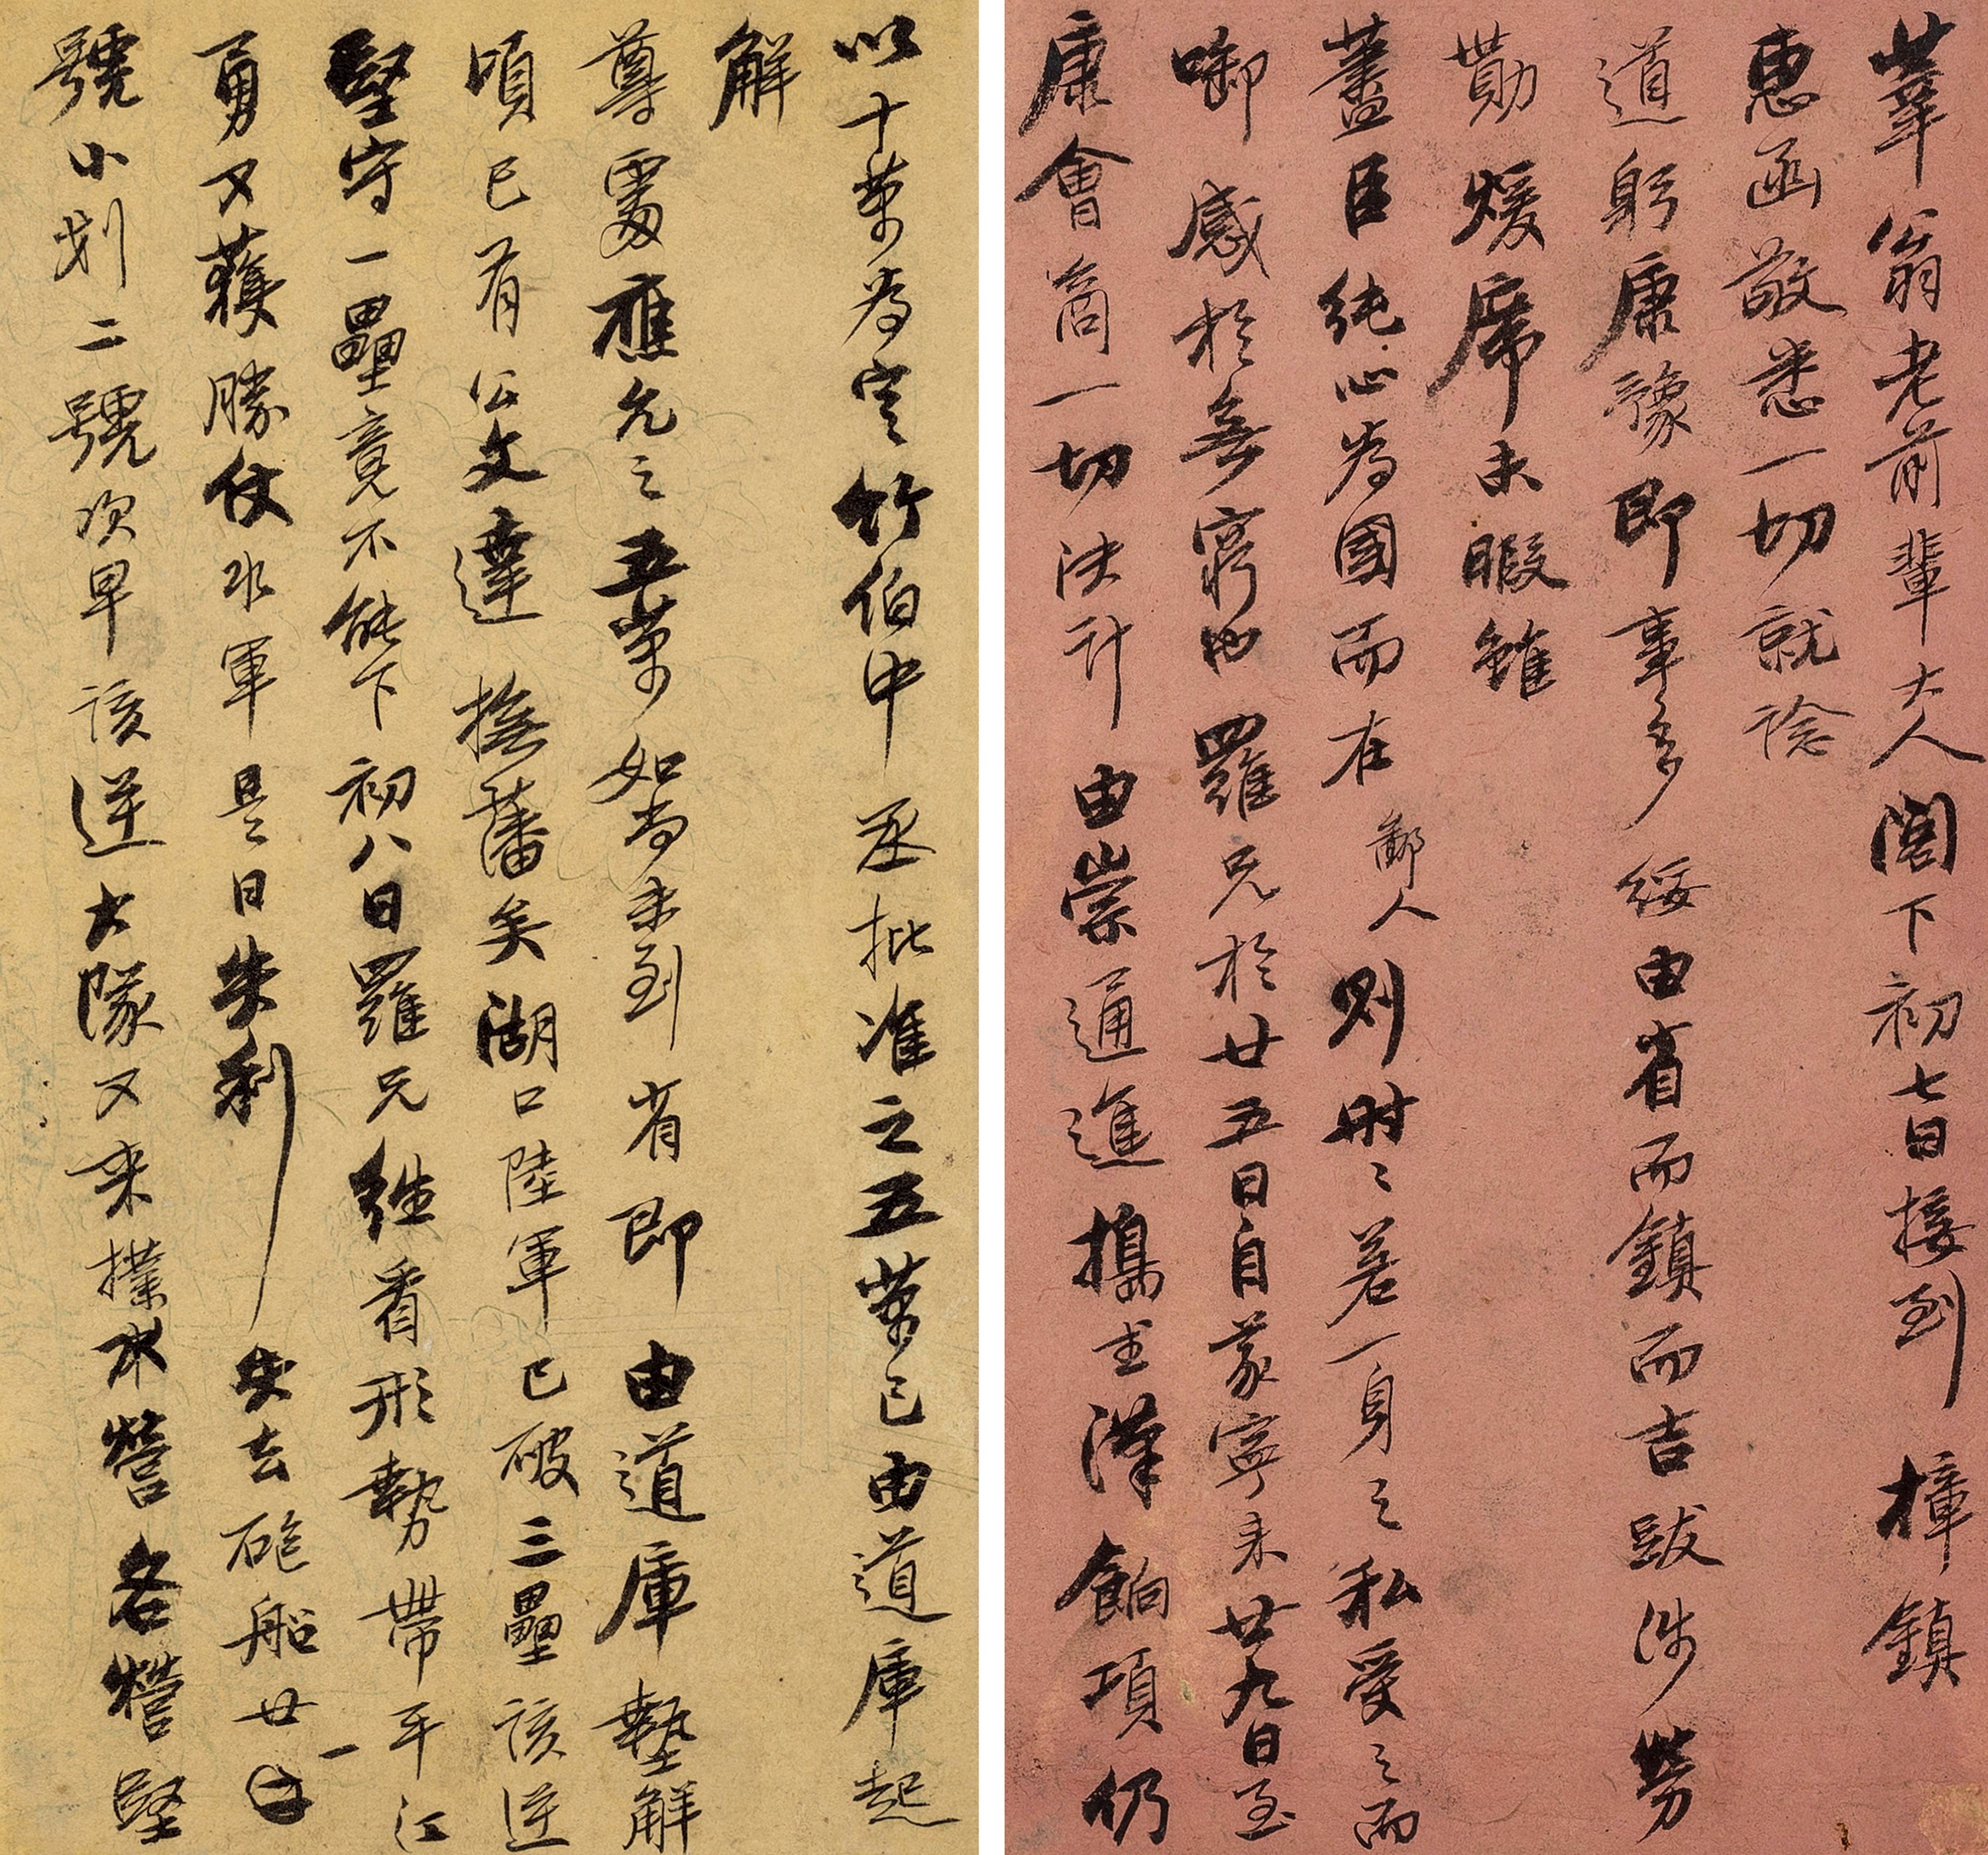 莘翁老前輩大人閣下初七日接到　樟鎮
惠函敬悉一切就諗
道躬康豫即事多　綏由省而鎮而吉跋涉勞
勩煖席未暇雖
藎臣純心為國而在鄙人則時〻若一身之私受之而
啣感於無窮也羅兄於廿五日自義寧來廿九日至
康會商一切決計由崇通進搗武漢餉項仍
以十萬為定竹伯中　丞批准之五萬已由道庫起
解
尊處應允之五萬如尚未到　省即由道庫墊解
頃已有公文達　撫藩矣湖口陸軍已破三壘該逆
堅守一壘竟不能下初八日羅兄往看形勢帶平江
勇又獲勝仗水軍是日失利　失去砲船廿一
號小划二號次早該逆大隊又來撲水營各營堅